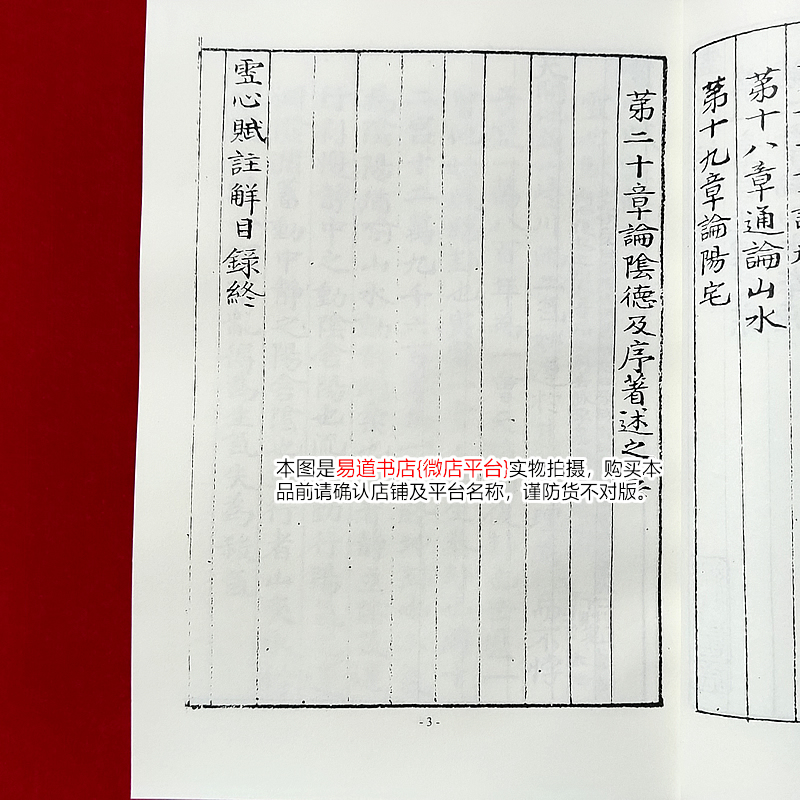 第十八章通論山水
第十九章論陽宅
第二十章論陰德及序著述之
靈心賦註解目錄終
本图是易道书店{微店平台}实物拍摄，购买本
品前请确认店铺及平台名称，谨防货不对版。
- 3 -